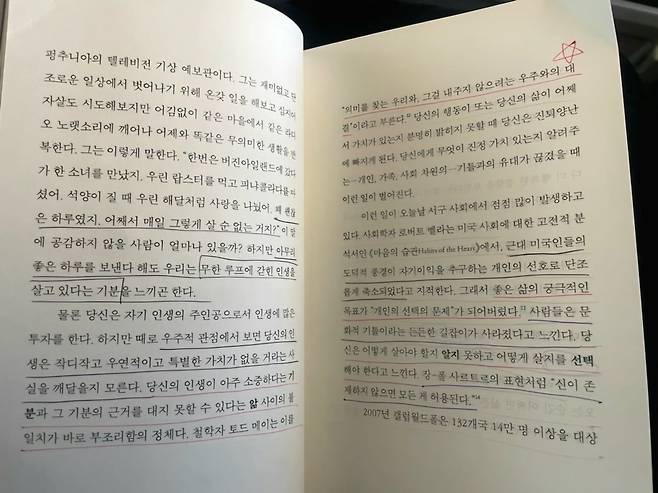 펑추니아의 텔레비전 기상 예보관이다. 그는 재미없고 단
조로운 일상에서 벗어나기 위해 온갖 일을 해보고 심지어
자살도 시도해보지만 어김없이 같은 마을에서 같은 라디
오 노랫소리에 깨어나 어제와 똑같은 무의미한 생활을 반
복한다. 그는 이렇게 말한다. “한번은 버진아일랜드에 갔다
가 한 소녀를 만났지. 우린 랍스터를 먹고 피냐콜라다를 마
셨어. 석양이 질 때 우린 해달처럼 사랑을 나눴어. 꽤 괜찮
은 하루였지. 어째서 매일 그렇게 살 순 없는 거지?” 이 말
에 공감하지 않을 사람이 얼마나 있을까? 하지만 아무리
좋은 하루를 보낸다 해도 우리는 무한 루프에 갇힌 인생을
살고 있다는 기분을 느끼곤 한다.
물론 당신은 자기 인생의 주인공으로서 인생에 많은
투자를 한다. 하지만 때로 우주적 관점에서 보면 당신의 인
생은 작디작고 우연적이고 특별한 가치가 없을 거라는 사
실을 깨달을지 모른다. 당신의 인생이 아주 소중하다는 기
분과 그 기분의 근거를 대지 못할 수 있다는 앎 사이의 불
일치가 바로 부조리함의 정체다. 철학자 토드 메이는 이를
“의미를 찾는 우리와, 그걸 내주지 않으려는 우주와의 대
결”이라고 부른다. 당신의 행동이 또는 당신의 삶이 어째
서 가치가 있는지 분명히 밝히지 못할 때 당신은 진퇴양난
에 빠지게 된다. 당신에게 무엇이 진정 가치 있는지 알려주
는—개인, 가족, 사회 차원의—기틀과의 유대가 끊겼을 때
이런 일이 벌어진다.
이런 일이 오늘날 서구 사회에서 점점 많이 발생하고
있다. 사회학자 로버트 벨라는 미국 사회에 대한 고전적 분
석서인 《마음의 습관Habits of the Heart》에서, 근대 미국인들의
도덕적 풍경이 자기이익을 추구하는 개인의 선호로 단조
롭게 축소되었다고 지적한다. 그래서 좋은 삶의 궁극적인
목표가 “개인의 선택의 문제”가 되어버렸다.¹³ 사람들은 문
화적 기틀이라는 든든한 길잡이가 사라졌다고 느낀다. 당
신은 어떻게 살아야 할지 알지 못하고 어떻게 살지를 선택
해야 한다고 느낀다. 장-폴 사르트르의 표현처럼 “신이 존
재하지 않으면 모든 게 허용된다.”¹⁴
2007년 갤럽월드폴은 132개국 14만 명 이상을 대상